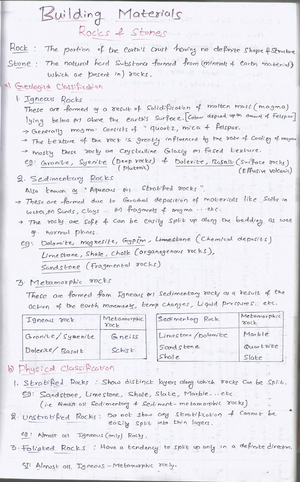 Building Materials
Rocks & Stones
Rock : The portion of the Earth's Crust having no definite Shape & Structure
Stone : The natural hard Substance formed from (minerals & Earthy material)
which are present in) rocks.
a) Geological Classification
1. Igneous Rocks
These are formed as a result of Solidification of molten mass (magma)
lying below or above the Earth's Surface. [Colour depend upon amount of Felspar]
→ Generally magma Consists of " Quartz, mica & Felspar.
→ The texture of the rock is greatly influenced by the rate of Cooling of magma
→ mostly these rock are Crystalline Glassy or Fused texture.
eg: Granite, Syenite (Deep rocks) & Dolerite, Basalt (Surface rocks)
(Plutonic) (Effusive volcanic)
2. Sedimentary Rocks
Also known as "Aqueous or Stratified rocks".
→ These are formed due to Gradual deposition of materials like Salts in
Sands, Clays ... or fragments of magma ... etc.
→ The rocks are Soft & Can be Easily Split up along the bedding as well
as normal planes.
eg: Dolomite, Magnesite, Gypsum, Limestone (Chemical deposits)
Limestone, Shale, Chalk (Organogenous rocks),
Sandstone (Fragmental rocks)
3. Metamorphic rocks
These are formed from Igneous or Sedimentary rocks as a result of the
action of the Earth movements, temp changes, Liquid pressures.. etc.
Igneous rock Metamorphic rock Sedimentary Rock Metamorphic rock
Granite/Syenite Gneiss Limestone/Dolomite Marble
Dolerite/Basalt Schist Sandstone Quartzite
Shale Slate
b) Physical Classification
1. Stratified Rocks : Show distinct layers along which Rocks Can be Split.
eg: Sandstone, Limestone, Shale, Slate, Marble... etc
(i.e Almost all Sedimentary & Sediment-metamorphic rocks)
2. Unstratified Rocks : Do not show any stratification & Cannot be
easily split into thin layers.
eg: Almost all Igneous (only) Rocks.
3. Foliated Rocks : Have a tendency to split up only in a definite direction.
Almost all Igneous - Metamorphic rocks.